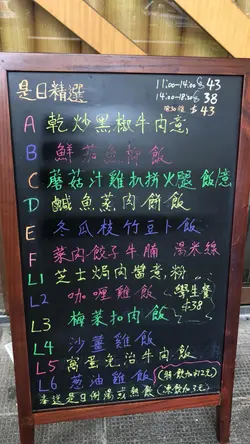 是日精選
11:00-14:00 $43
14:00-18:30 $38
$43
A 乾炒黑椒牛肉意
B 鮮茄魚柳飯
C 蘑菇汁雞扒拼火腿飯/意
D 鹹魚蒸肉餅飯
E 冬瓜枝竹豆卜飯
F 菜肉餃子牛腩湯米線
L1 芝士焗肉醬意粉
L2 咖喱雞飯
學生餐
$38
L3 梅菜扣肉飯
L4 沙薑雞飯
L5 窩蛋免治牛肉飯
L6 葱油雞飯
奉送是日例湯或熱飲
(凍飲加3元)